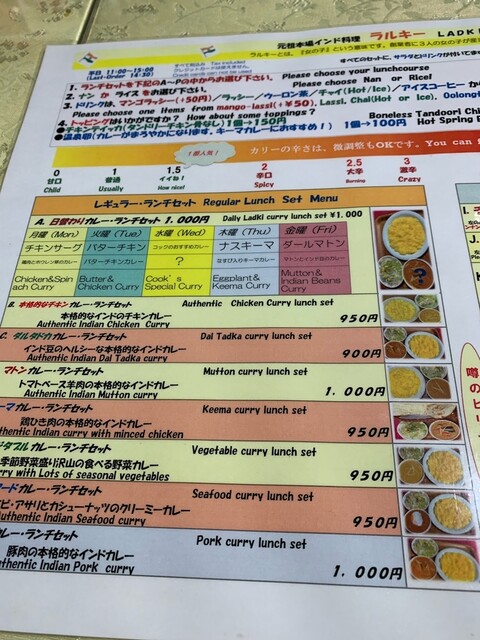 元祖本場インド料理 ラルキー LADK
平日 11:00~15:00
(Last-Order 14:30)
Tax included
クレジットカードは使えません
Credit cards can not be used
すべてのセットに、サラダとドリンクが付いてます
1. ランチセットを下記のA~Pの中からお選び下さい。 Please choose your lunchcourse
2. ナン か ライス をお選び下さい。 Please choose Nan or Rice!
3. ドリンクは、マンゴラッシー(+50円)/ラッシー/ウーロン茶/チャイ(Hot/Ice)/アイスコーヒー か
Please choose one items from mango-lassi(+¥50), Lassi, Chai(Hot or Ice), Oolong
4. トッピングはいかがですか? How about some toppings?
●チキンティッカ(タンドリーチキン骨なし)1個→150円 Boneless Tandoori Chi
●温泉卵(カレーがまろやかになります、キーマカレーにおすすめ!) 1個→100円 Hot Spring
カリーの辛さは、微調整もOKです。You can f
1番人気!
0 1 1.5 2 2.5 3
甘口 普通 いいね! 辛口 大辛 激辛
Child Usually How nice! Spicy Burning Crazy
レギュラー・ランチセット Regular Lunch Set Menu
A. 日替わりカレー・ランチセット 1.000円 Daily Ladki curry lunch set ¥1.000
月曜(Mon) 火曜(Tue) 水曜(Wed) 木曜(Thu) 金曜(Fri)
チキンサーグ バターチキン コックのおすすめカレー ナスキーマ ダールマトン
鶏肉とホウレン草のカレー バターチキンカレー ? なすびとひき肉カレー マトンとインド豆のカレー
Chicken&Spin Butter & Cook's Eggplant& Mutton &
ach Curry Chicken Curry Special Curry Keema Curry Indian Beans
Curry
B. 本格的なチキンカレー・ランチセット Authentic Chicken Curry lunch set
本格的なインドのチキンカレー 950円
Authentic Indian Chicken Curry
C. ダルタドカカレー・ランチセット Dal Tadka curry lunch set
インド豆のヘルシーな本格的なインドカレー 900円
Authentic Indian Dal Tadka curry
マトンカレー・ランチセット Mutton curry lunch set
トマトベース羊肉の本格的なインドカレー 1.000円
Authentic Indian Mutton curry
ーマカレー・ランチセット Keema curry lunch set
鶏ひき肉の本格的なインドカレー 950円
thentic Indian curry with minced chicken
ジタブルカレー・ランチセット Vegetable curry lunch set
季節野菜盛り沢山の食べる野菜カレー
rry with Lots of seasonal vegetables 950円
ードカレー・ランチセット Seafood curry lunch set
ビ・アサリとカシューナッツのクリーミーカレー
uthentic Indian Seafood curry 950円
カレー・ランチセット Pork curry lunch set
豚肉の本格的なインドカレー
uthentic Indian Pork curry 1.000円